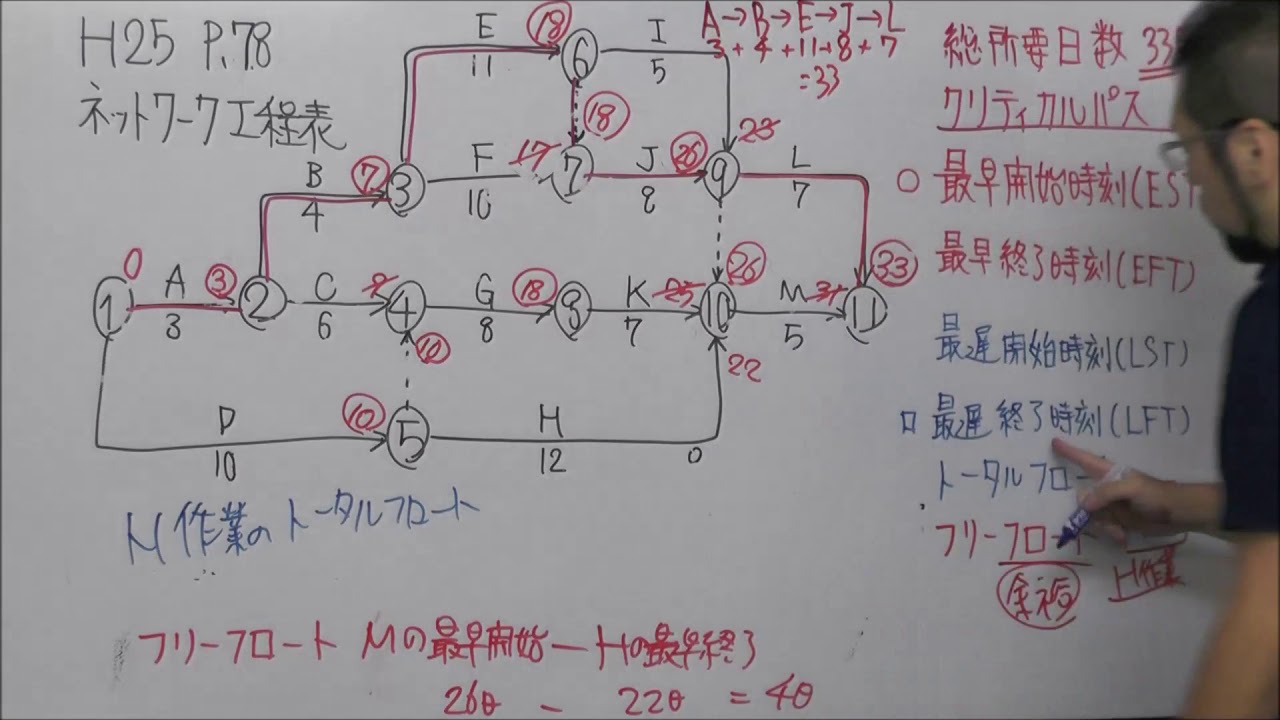 H25 P.78
ネットワーク工程表
A→B→E→J→L
3+4+11+8+7
=33
総所要日数 33
クリティカルパス
○ 最早開始時刻(EST
最早終了時刻(EFT)
最遅開始時刻(LST)
□ 最遅終了時刻(LFT)
トータルフロー
フリーフロート
余裕
H作業
E
11
18
6
I
5
18
23
B
4
7
3
F
10
17
7
J
8
26
9
L
7
0
1
A
3
3
2
C
6
9
4
G
8
18
8
K
7
25
26
10
M
5
31
33
11
10
22
D
10
10
5
H
12
0
M作業のトータルフロート
フリーフロート Mの最早開始ーHの最早終了
26日 - 22日 = 4日